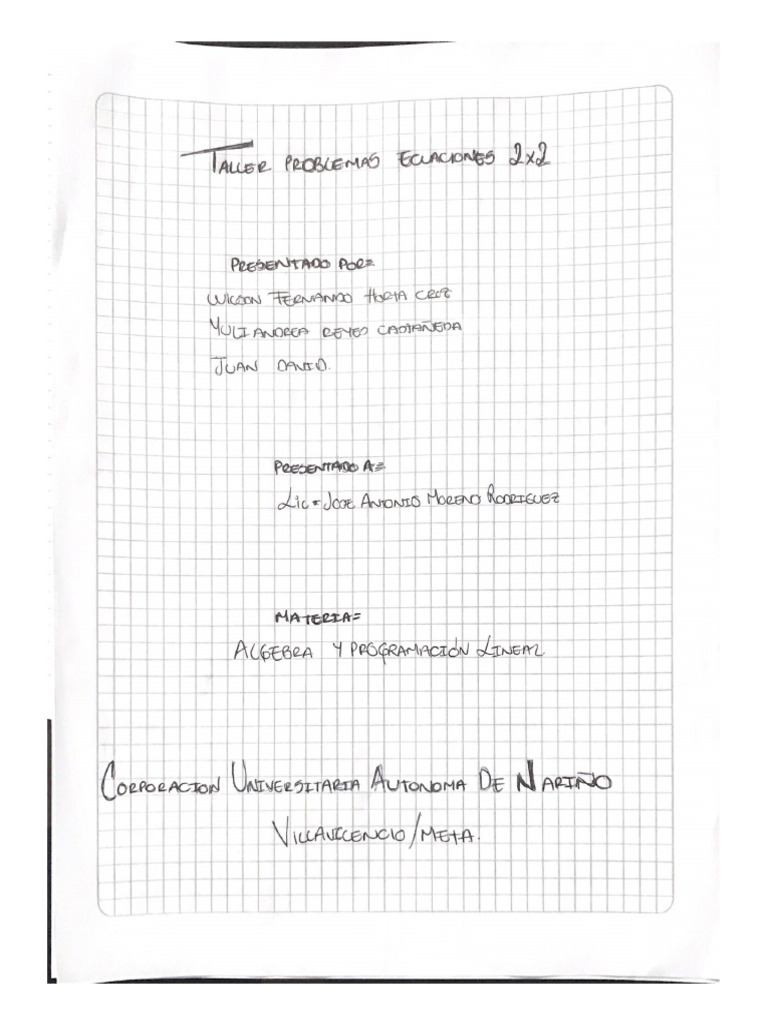 TALLER PROBLEMAS ECUACIONES 2x2
PRESENTADO POR=
WILSON FERNANDO HORTA CRUZ
YULI ANDREA REYES CASTAÑEDA
JUAN DAVID.
PRESENTADO A=
Lic = JOSE ANTONIO MORENO RODRIGUEZ
MATERIA=
ALGEBRA Y PROGRAMACIÓN LINEAL
CORPORACION UNIVERSITARIA AUTONOMA DE NARIÑO
VILLAVICENCIO/META.